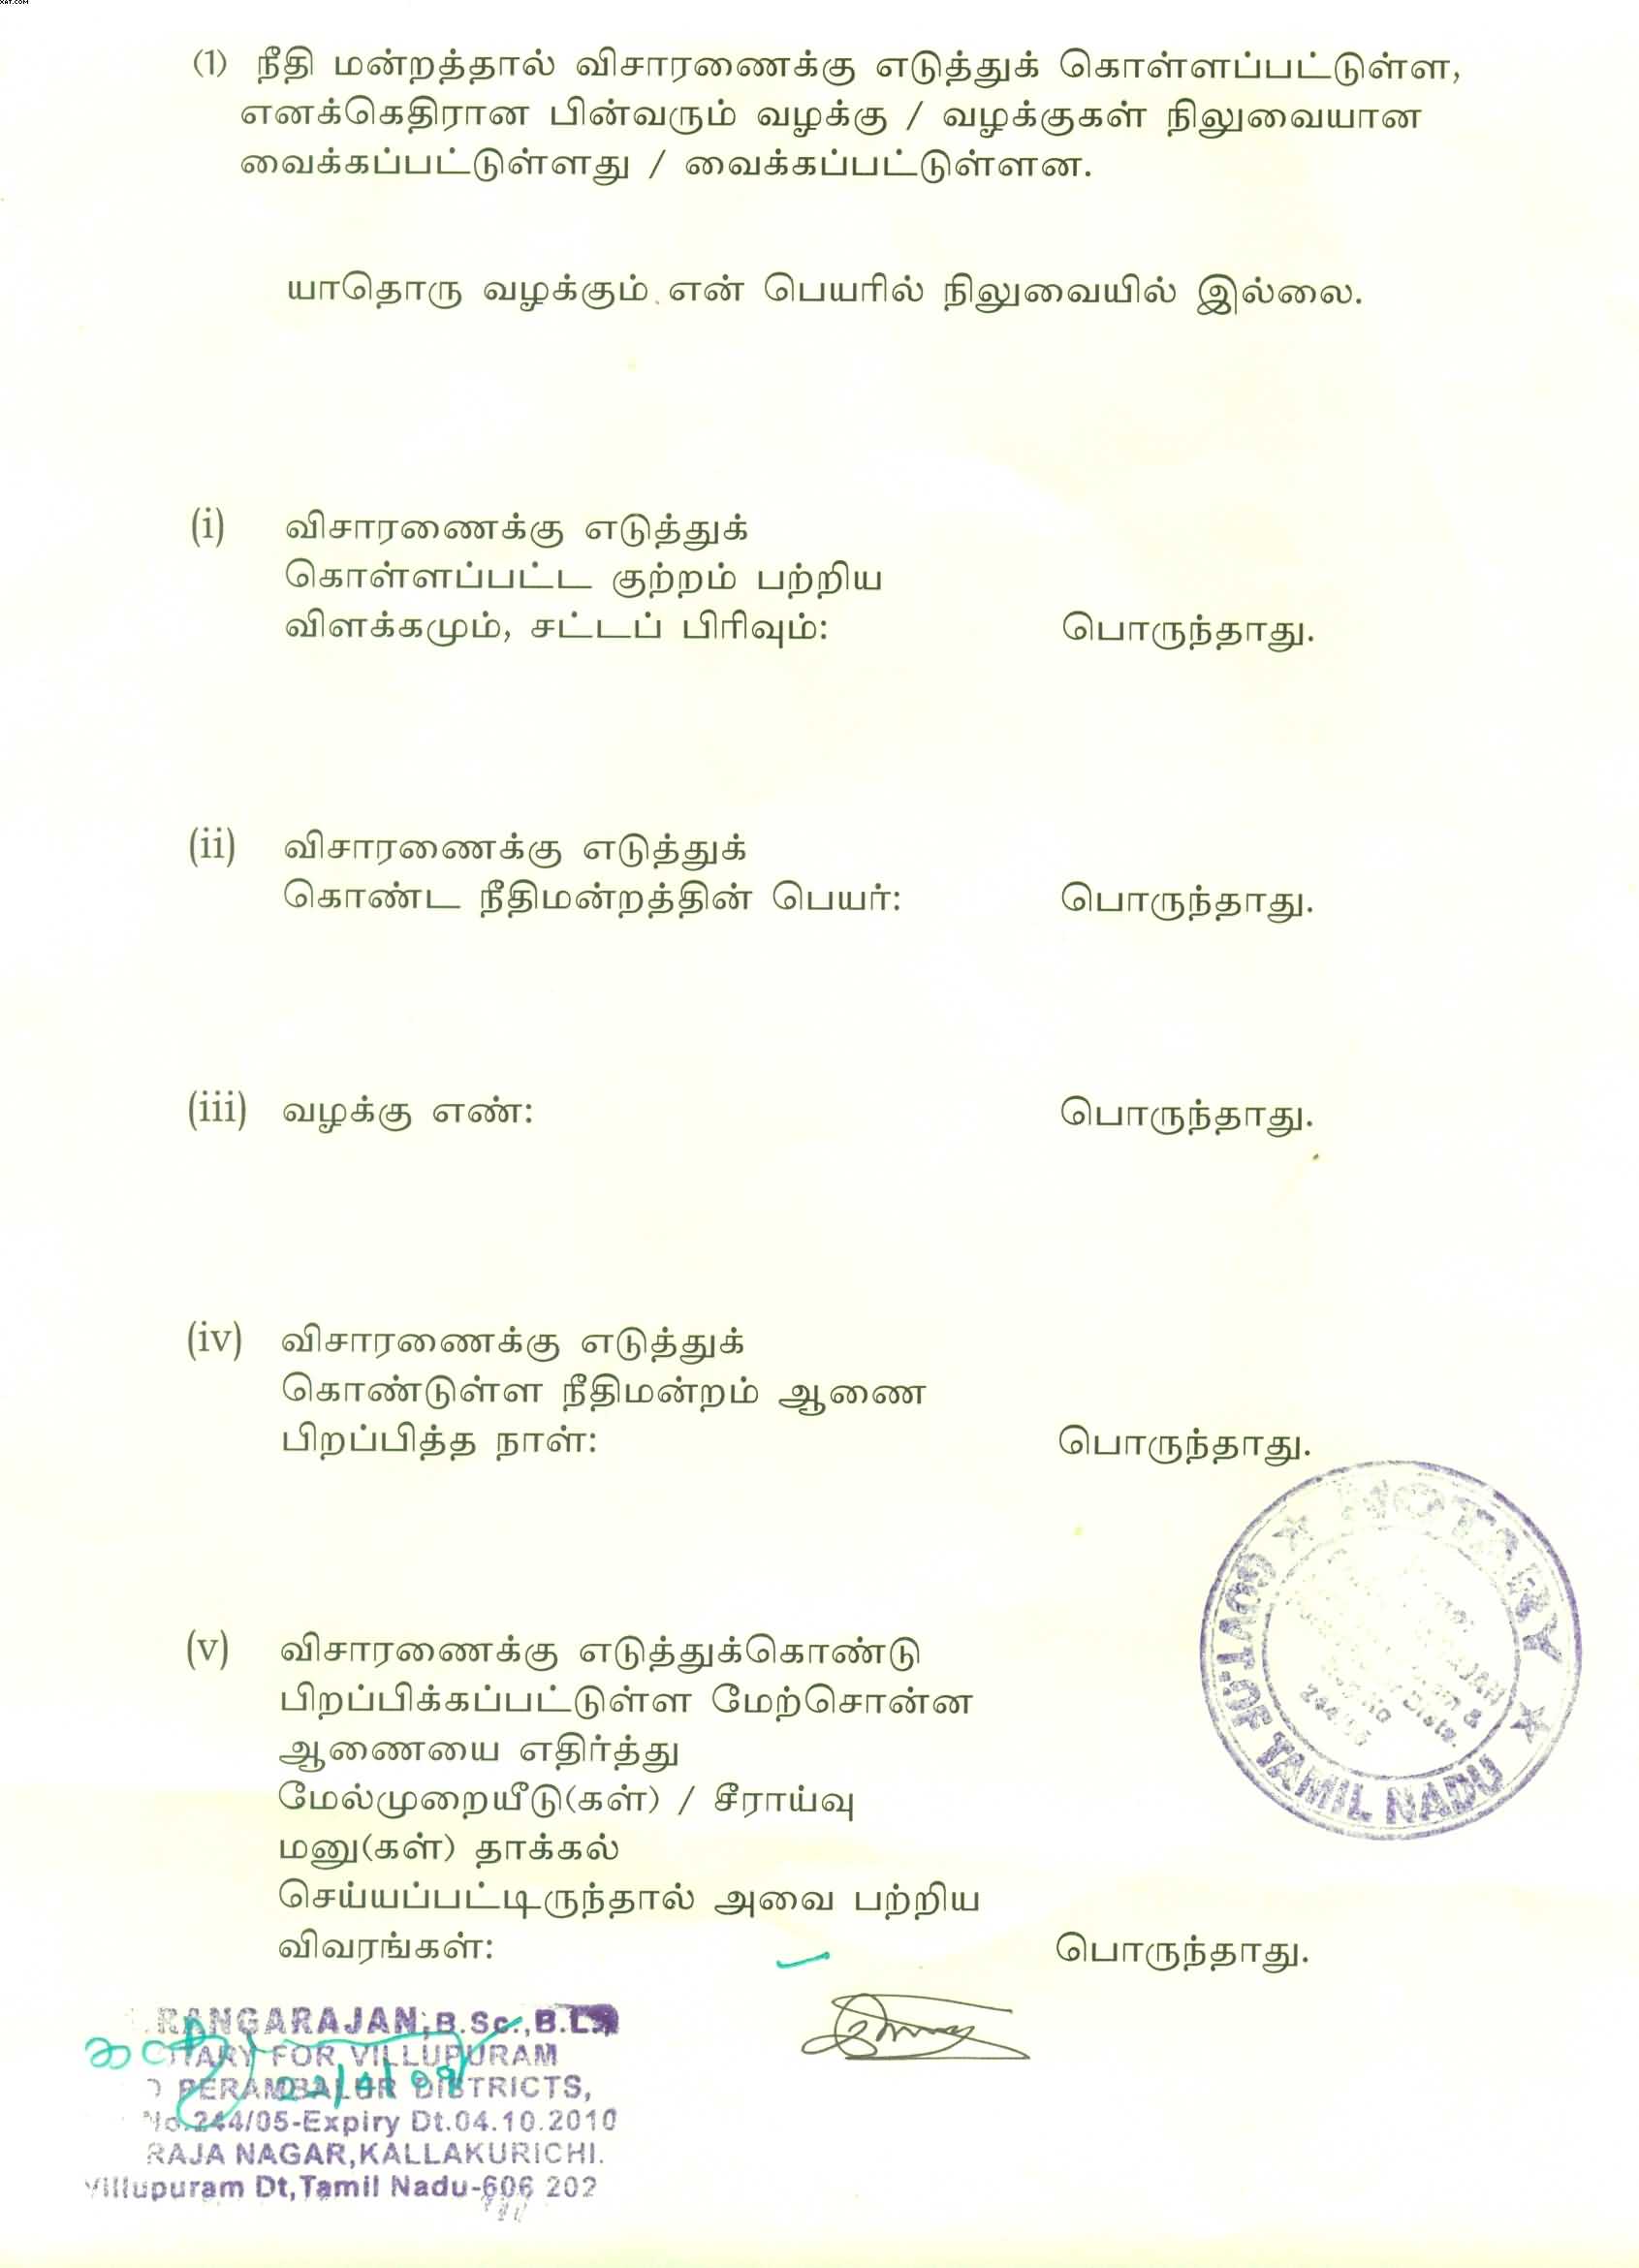 XAT.COM
(1) நீதி மன்றத்தால் விசாரணைக்கு எடுத்துக் கொள்ளப்பட்டுள்ள,
எனக்கெதிரான பின்வரும் வழக்கு / வழக்குகள் நிலுவையான
வைக்கப்பட்டுள்ளது / வைக்கப்பட்டுள்ளன.
யாதொரு வழக்கும் என் பெயரில் நிலுவையில் இல்லை.
(i) விசாரணைக்கு எடுத்துக்
கொள்ளப்பட்ட குற்றம் பற்றிய
விளக்கமும், சட்டப் பிரிவும்: பொருந்தாது.
(ii) விசாரணைக்கு எடுத்துக்
கொண்ட நீதிமன்றத்தின் பெயர்: பொருந்தாது.
(iii) வழக்கு எண்: பொருந்தாது.
(iv) விசாரணைக்கு எடுத்துக்
கொண்டுள்ள நீதிமன்றம் ஆணை
பிறப்பித்த நாள்: பொருந்தாது.
NOTARY
GOVT.OF TAMIL NADU
(v) விசாரணைக்கு எடுத்துக்கொண்டு
பிறப்பிக்கப்பட்டுள்ள மேற்சொன்ன
ஆணையை எதிர்த்து
மேல்முறையீடு(கள்) / சீராய்வு
மனு(கள்) தாக்கல்
செய்யப்பட்டிருந்தால் அவை பற்றிய
விவரங்கள்: பொருந்தாது.
RANGARAJAN, B.Sc., B.L.,
TARY FOR VILLUPURAM
PERAMBALUR DISTRICTS,
No.244/05-Expiry Dt.04.10.2010
RAJA NAGAR,KALLAKURICHI.
Villupuram Dt,Tamil Nadu-606 202